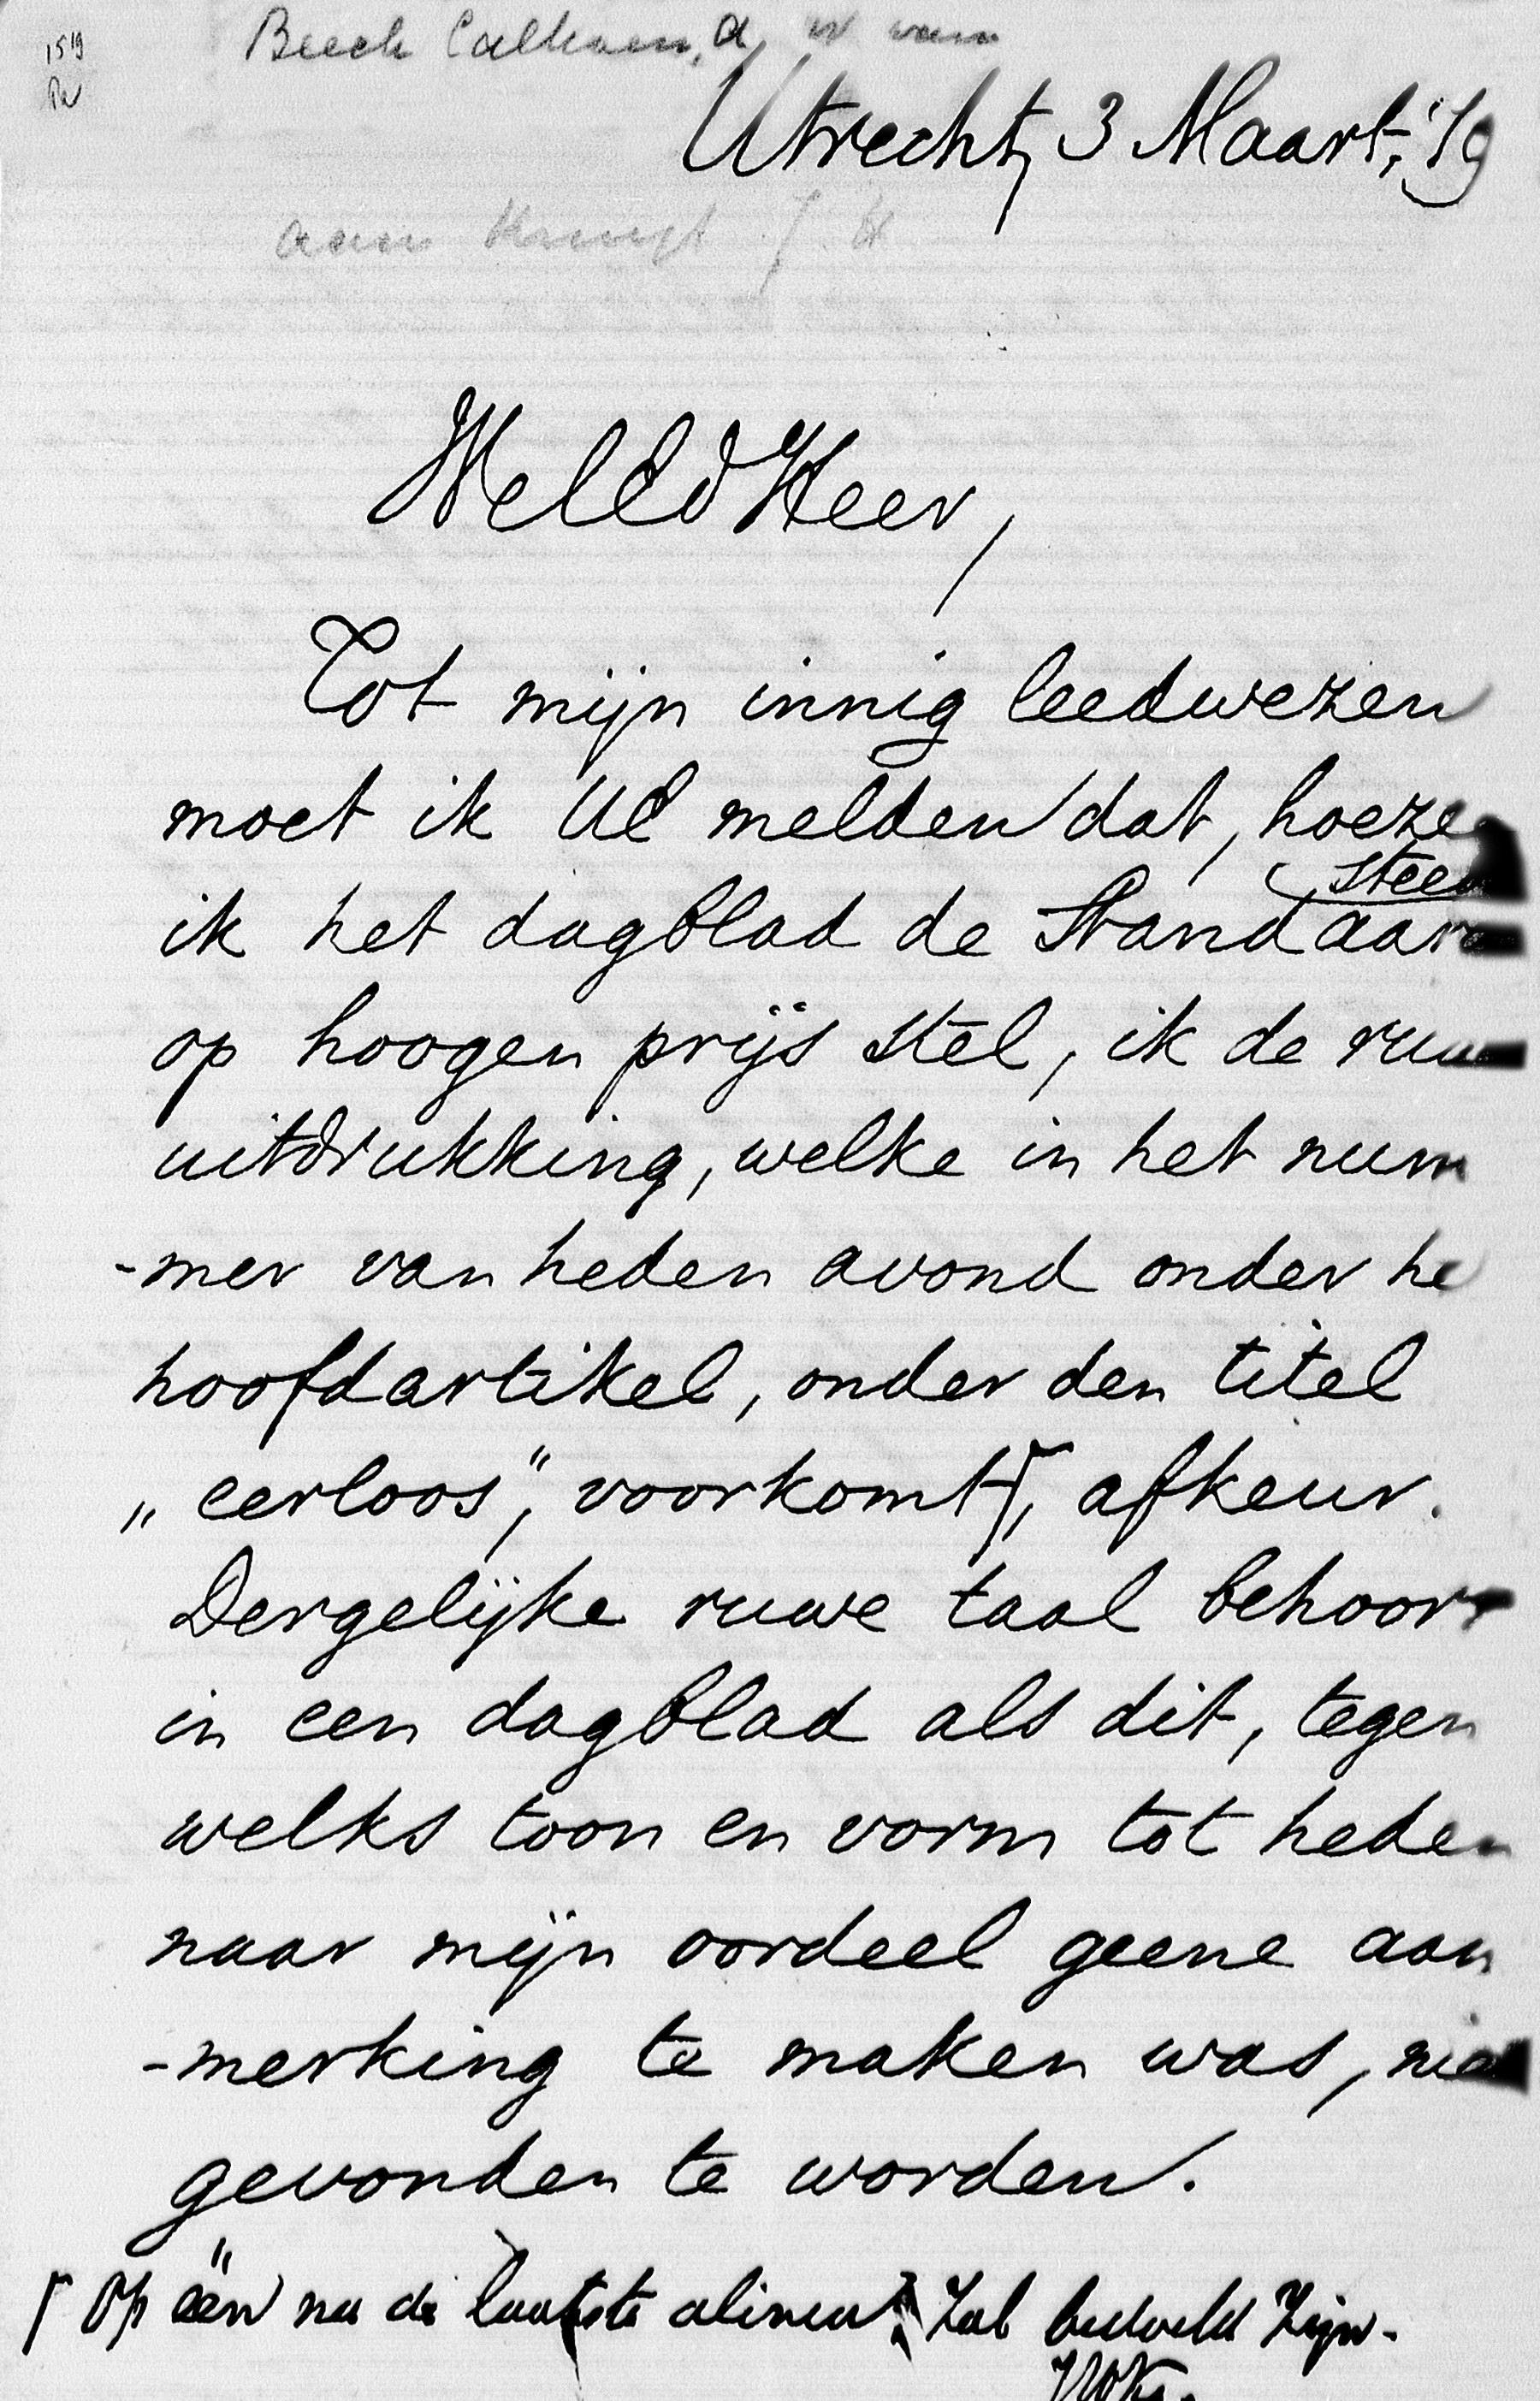 1519
Beeck Calkoen, a. w van
Utrecht, 3 Maart, '79
aan Kruijt J H
WelEd Heer,
Tot mijn innig leedwezen
moet ik UE melden dat, hoeze
steeds
ik het dagblad de Standaar
op hoogen prijs stel, ik de ruw
uitdrukking, welke in het num
-mer van heden avond onder he
hoofdartikel, onder den titel
„eerloos”, voorkomt Γ, afkeur.
Dergelijke ruwe taal behoort
in een dagblad als dit, tegen
welks toon en vorm tot heden
naar mijn oordeel geene aan
-merking te maken was, nie
gevonden te worden.
Γ Op één na de laatste alinea zal bedoeld zijn.